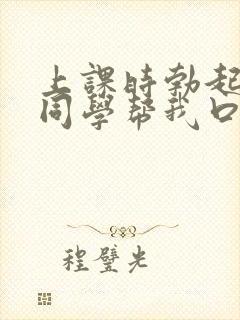 上課時勃起
同學幫我口
程璧光